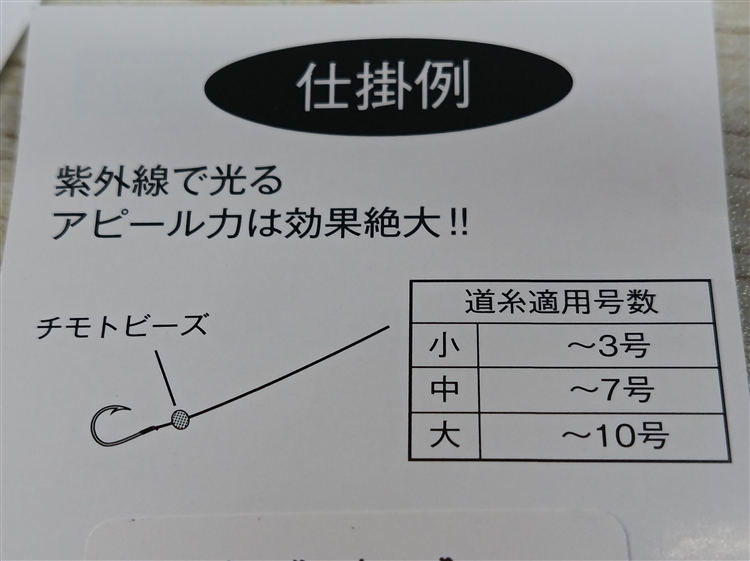 仕掛例
紫外線で光る
アピール力は効果絶大!!
チモトビーズ
道糸適用号数
小 ～3号
中 ～7号
大 ～10号